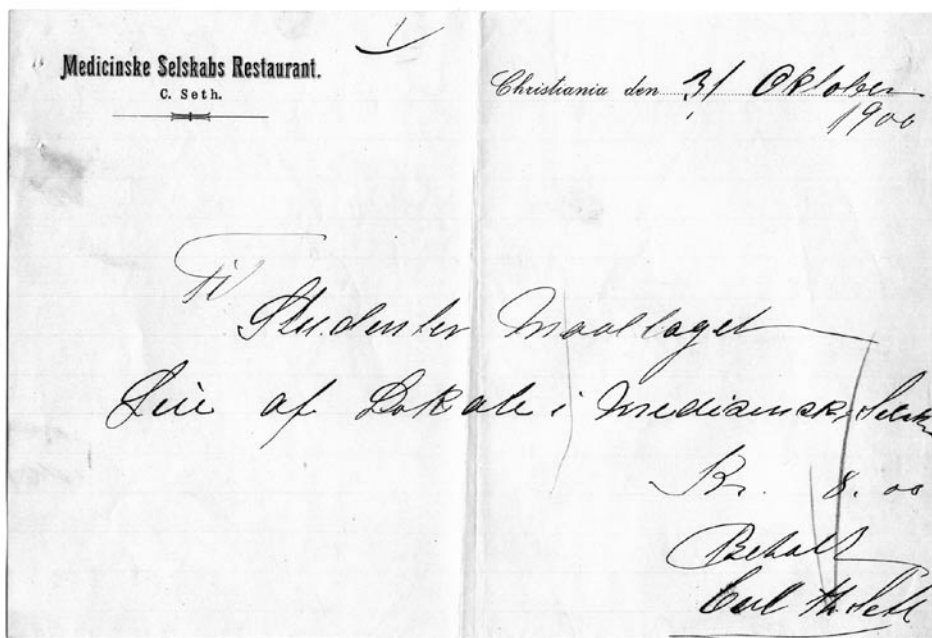 Medicinske Selskabs Restaurant.
C. Seth.
Christiania den 31 Oktober
1900
Til
Studenter Maallaget
Leie af Lokale i Medicinsk Selsk
Kr. 8.00
Betalt
Carl Th. Seth